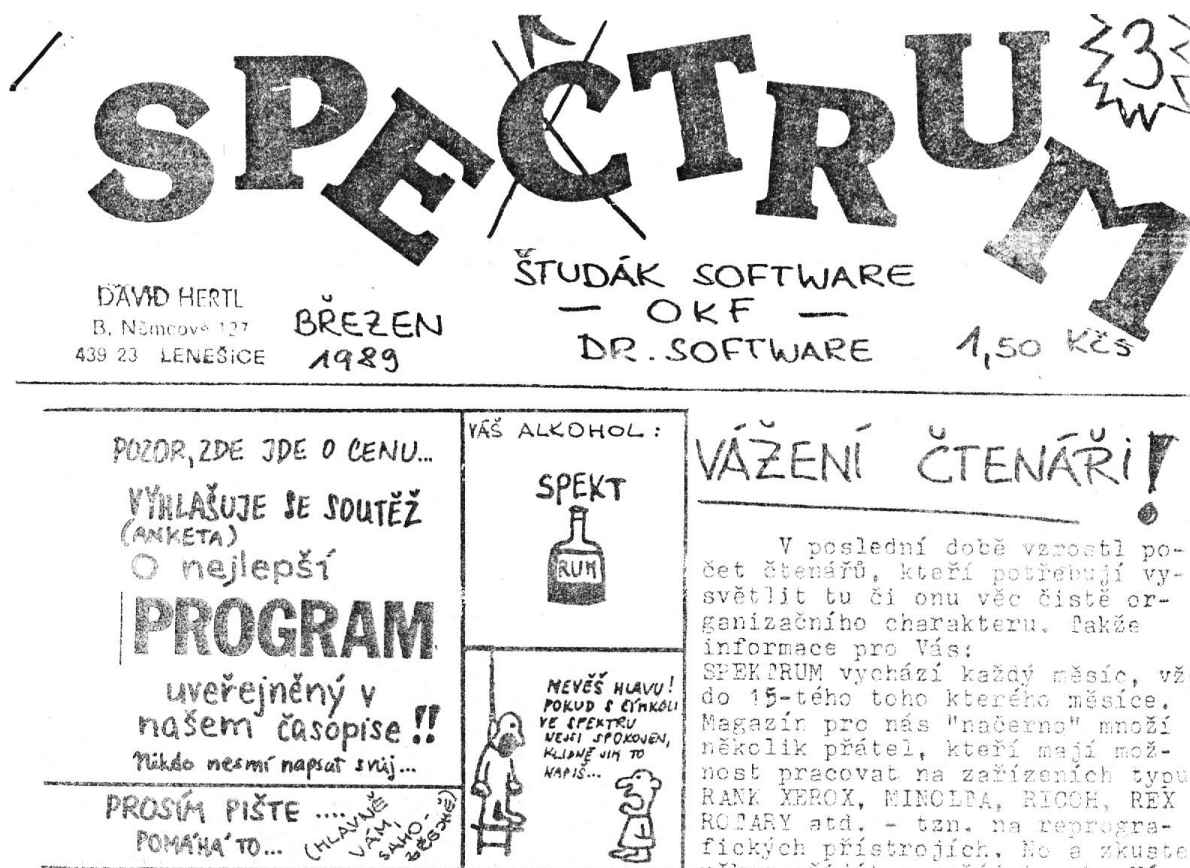 SPEČTRUM
3
ŠTUDÁK SOFTWARE
— OKF —
DR. SOFTWARE
DAVID HERTL
B. Němcové 127
439 23 LENEŠICE
BŘEZEN
1989
1,50 Kčs
POZOR, ZDE JDE O CENU...
VYHLAŠUJE SE SOUTĚŽ
(ANKETA)
O nejlepší
PROGRAM
uveřejněný v
našem časopise !!
Nikdo nesmí napsat svůj...
PROSÍM PIŠTE ....
POMÁHÁ TO...
(HLAVNĚ
VÁM,
SAMO-
ZŘEJMĚ)
VÁŠ ALKOHOL:
SPEKT
RUM
NEVĚŠ HLAVU!
POKUD S ČÍMKOLI
VE SPEKTRU
NEJSI SPOKOJEN,
KLIDNĚ JIM TO
NAPIŠ...
VÁŽENÍ ČTENÁŘI!
V poslední době vzrostl po-
čet čtenářů, kteří potřebují vy-
světlit tu či onu věc čistě or-
ganizačního charakteru. Takže
informace pro Vás:
SPEKTRUM vychází každý měsíc, vž
do 15-tého toho kterého měsíce.
Magazín pro nás "načerno" množí
několik přátel, kteří mají mož-
nost pracovat na zařízeních typu
RANK XEROX, MINOLTA, RICOH, REX
ROTARY atd. - tzn. na reprogra-
fických přístrojích. No a zkuste